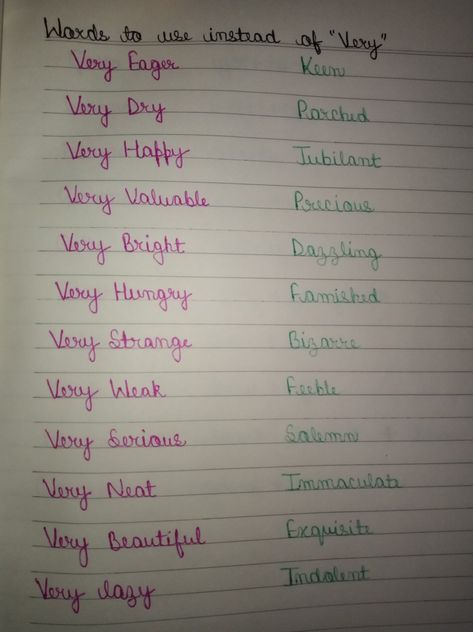 Words to use instead of "Very"
Very Eager Keen
Very Dry Parched
Very Happy Jubilant
Very Valuable Precious
Very Bright Dazzling
Very Hungry Famished
Very Strange Bizarre
Very Weak Feeble
Very Serious Salemn
Very Neat Immaculate
Very Beautiful Exquisite
Very Lazy Indolent